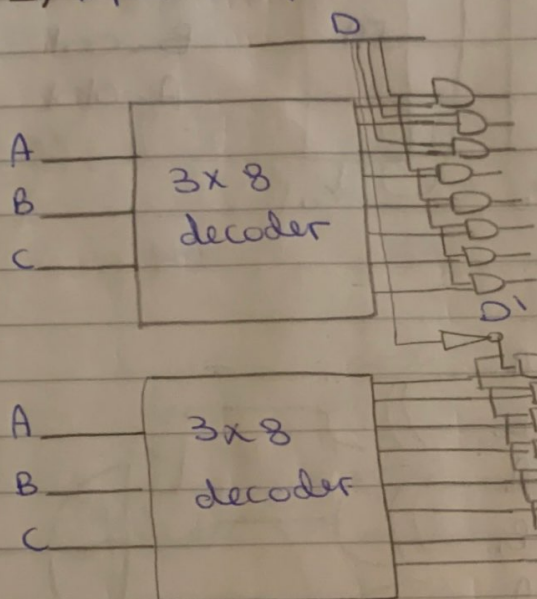 D
A
B
C
3x8
decoder
D'
A
B
C
3x8
decoder